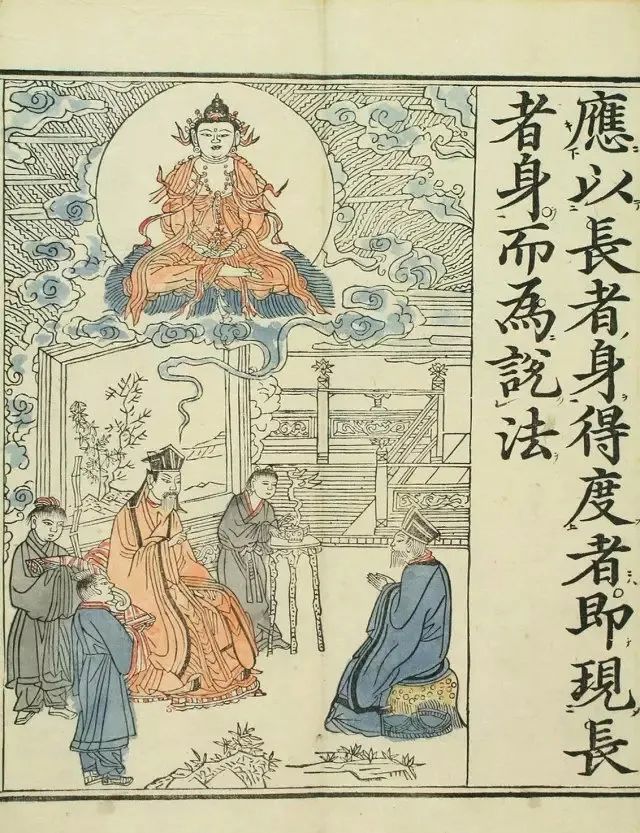 應以長者身得度者。即現長
者身。而為說法